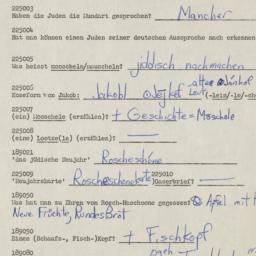 225003
Haben die Juden die Mundart gesprochen? Mancher
225004
Hat man können einen Juden seiner deutschen Aussprache nach erkennen
225005
Was heisst mooscheln/mauscheln? jiddisch nachmachen
225006
Koseform von Jakob: Jakobl (-lein/-le/-che
225007
(ein) Mooschele (erzählen): + Geschichte = Masschele
225008
(eine) Lootze(le) (erzählen):
189021
'das jüdische Neujahr' Roscheschone
225009
'Neujahrskarte' 225010
Was hat man zu Ihnen von Rosch-Haschoone gegessen? Äpfel mit H
Neue Früchte, rundes Brot
189050
Einen (Schaafs-, Fisch-)Kopf? + Fischkopf
189080